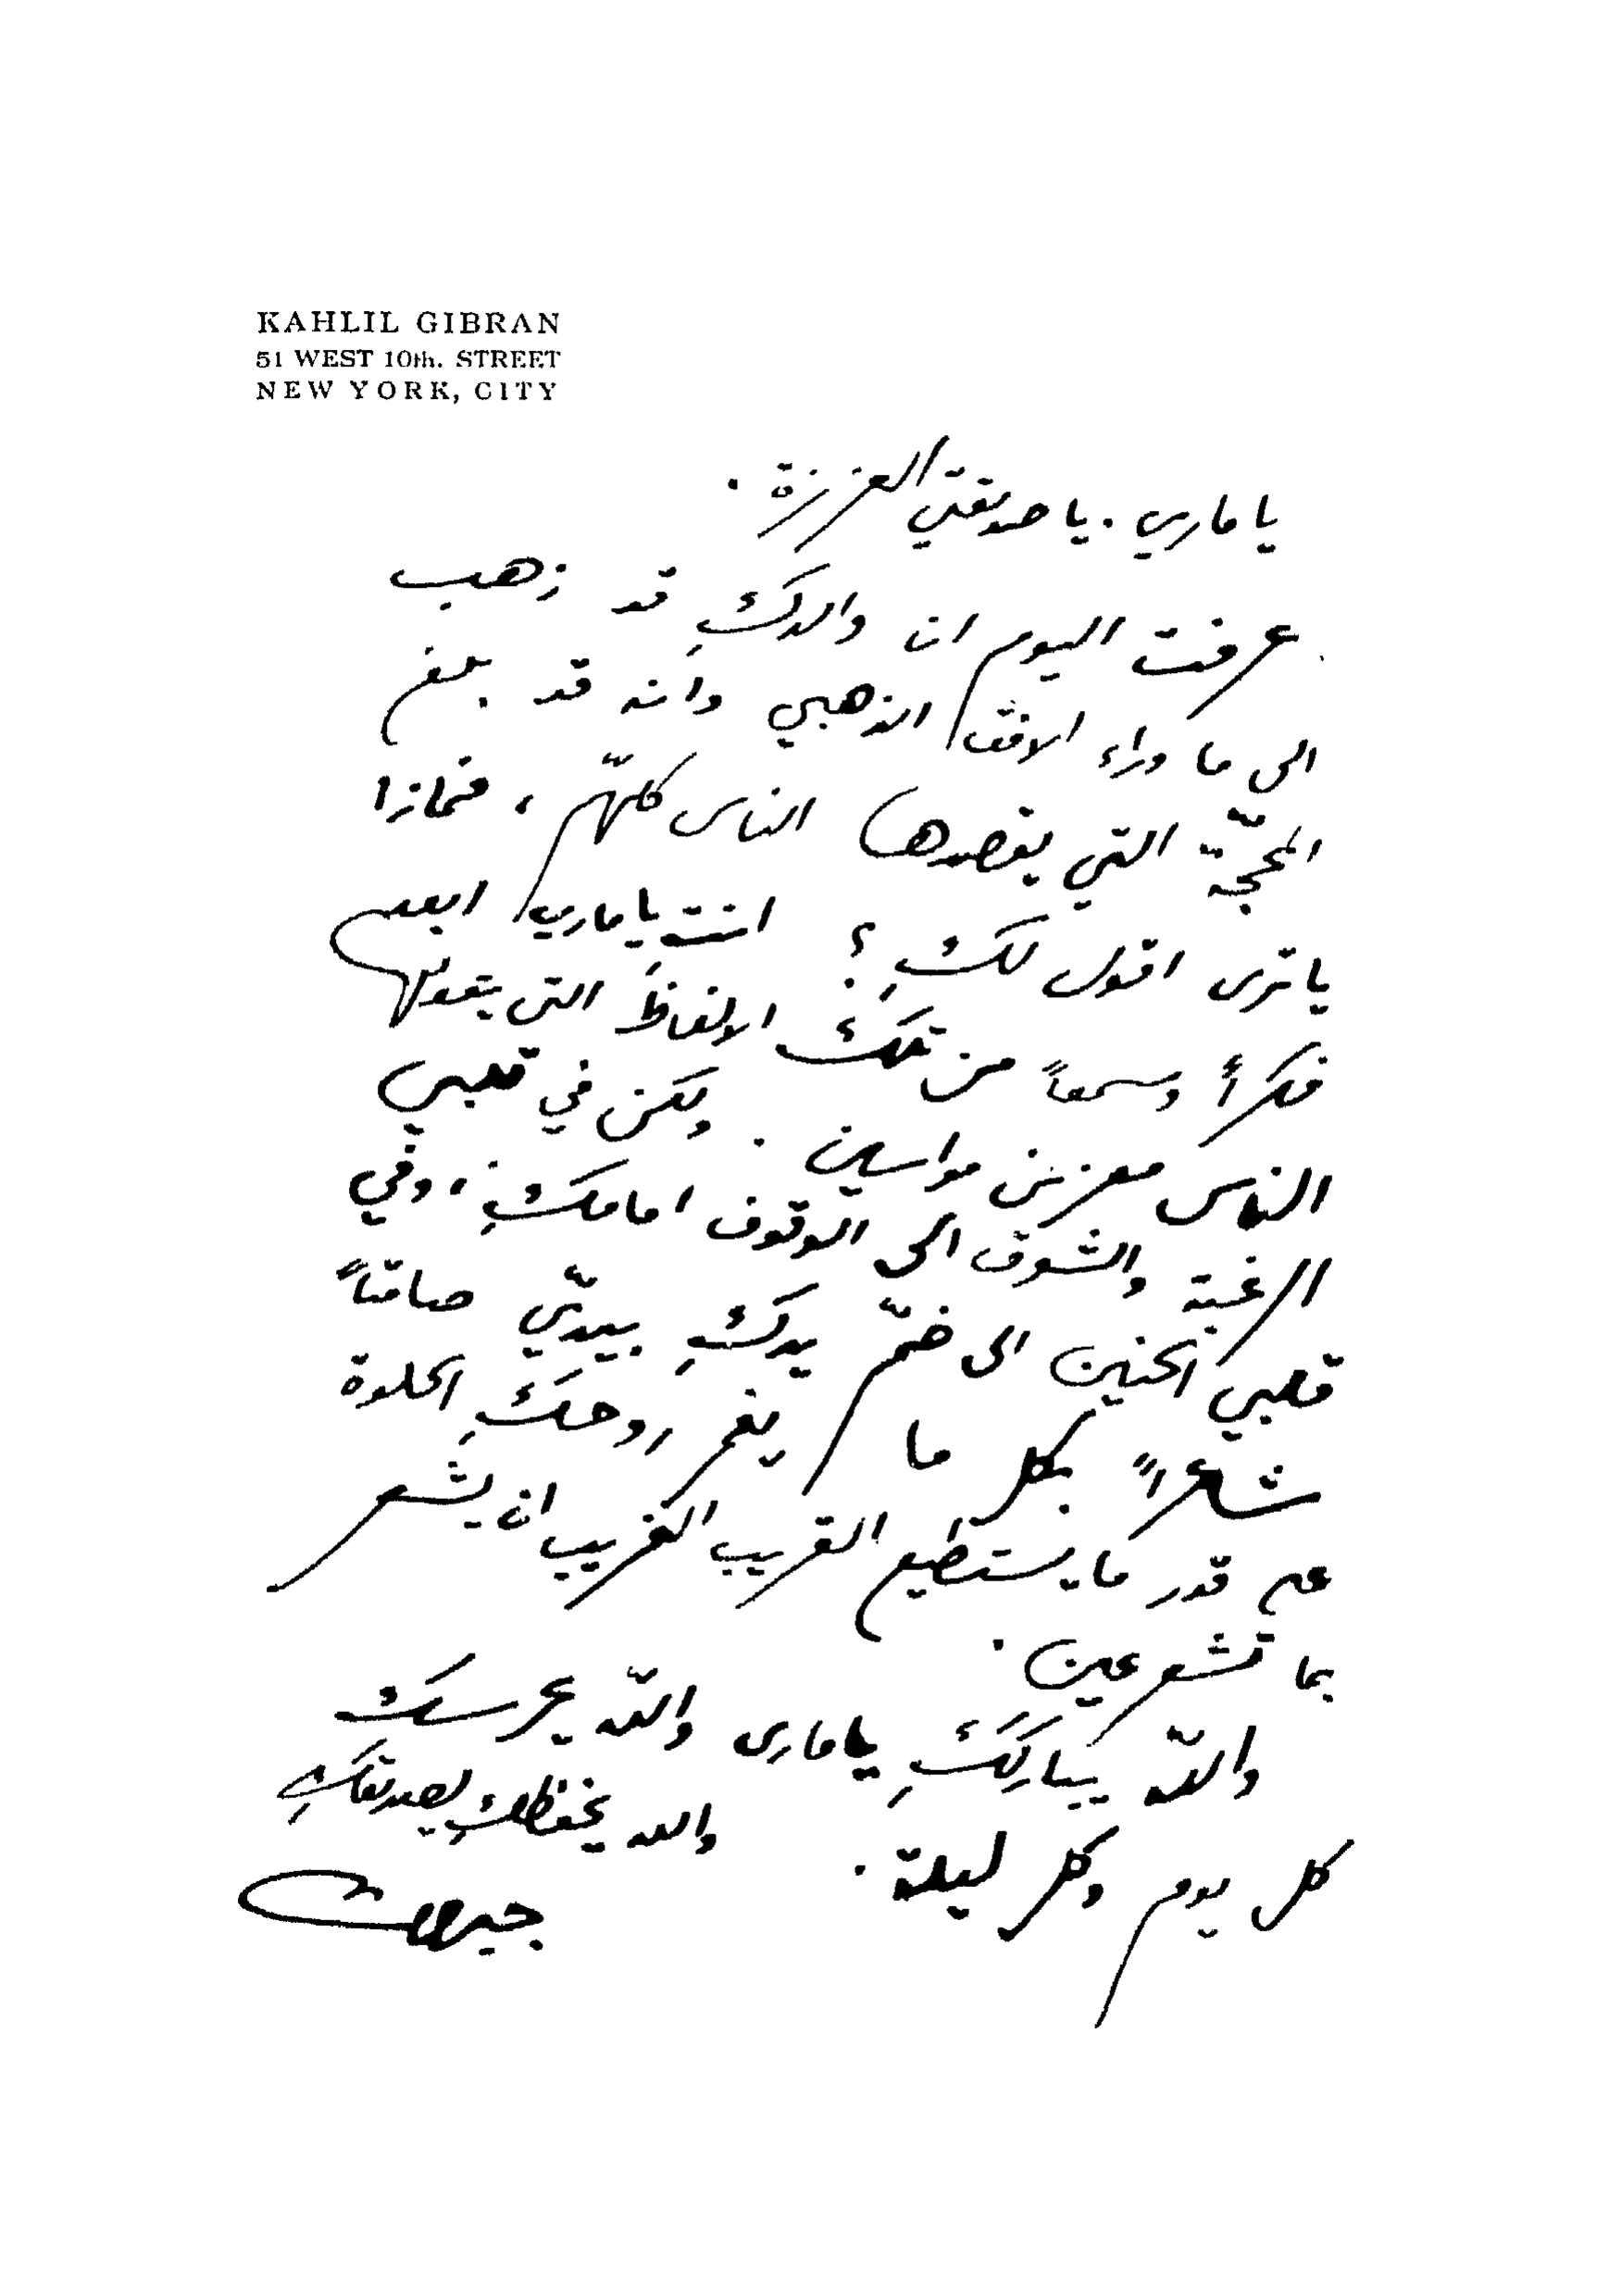 KAHLIL GIBRAN
51 WEST 10th. STREET
NEW YORK, CITY
يا ماري. يا صديقتي العزيزة.
عرفت اليوم ان والدكِ قد ذهب
الى ما وراء الافق الذهبي وانه قد بلغ
المحجّة التي يقصدها الناس كلهّم، فماذا
يا ترى اقول لكِ؟ انتِ يا ماري ابعد
فكراً وسمعاً من تلك الالفاظ التي يقولها
الناس معزين مواسين. ولكن في قلبي
الرغبة والشوق الى الوقوف امامكِ، وفي
قلبي الحنين الى ضمّ يدكِ بيديّ صامتاً
شاعراً بكل ما يغمر روحكِ الحلوة
على قدر ما يستطيع القريب الغريب ان يشعر
بما تشعرعين.
والله يباركِك يا ماري والله يحرسك
كل يوم وكل ليلة. والله يحفظكِ لصديقكِ
جبران